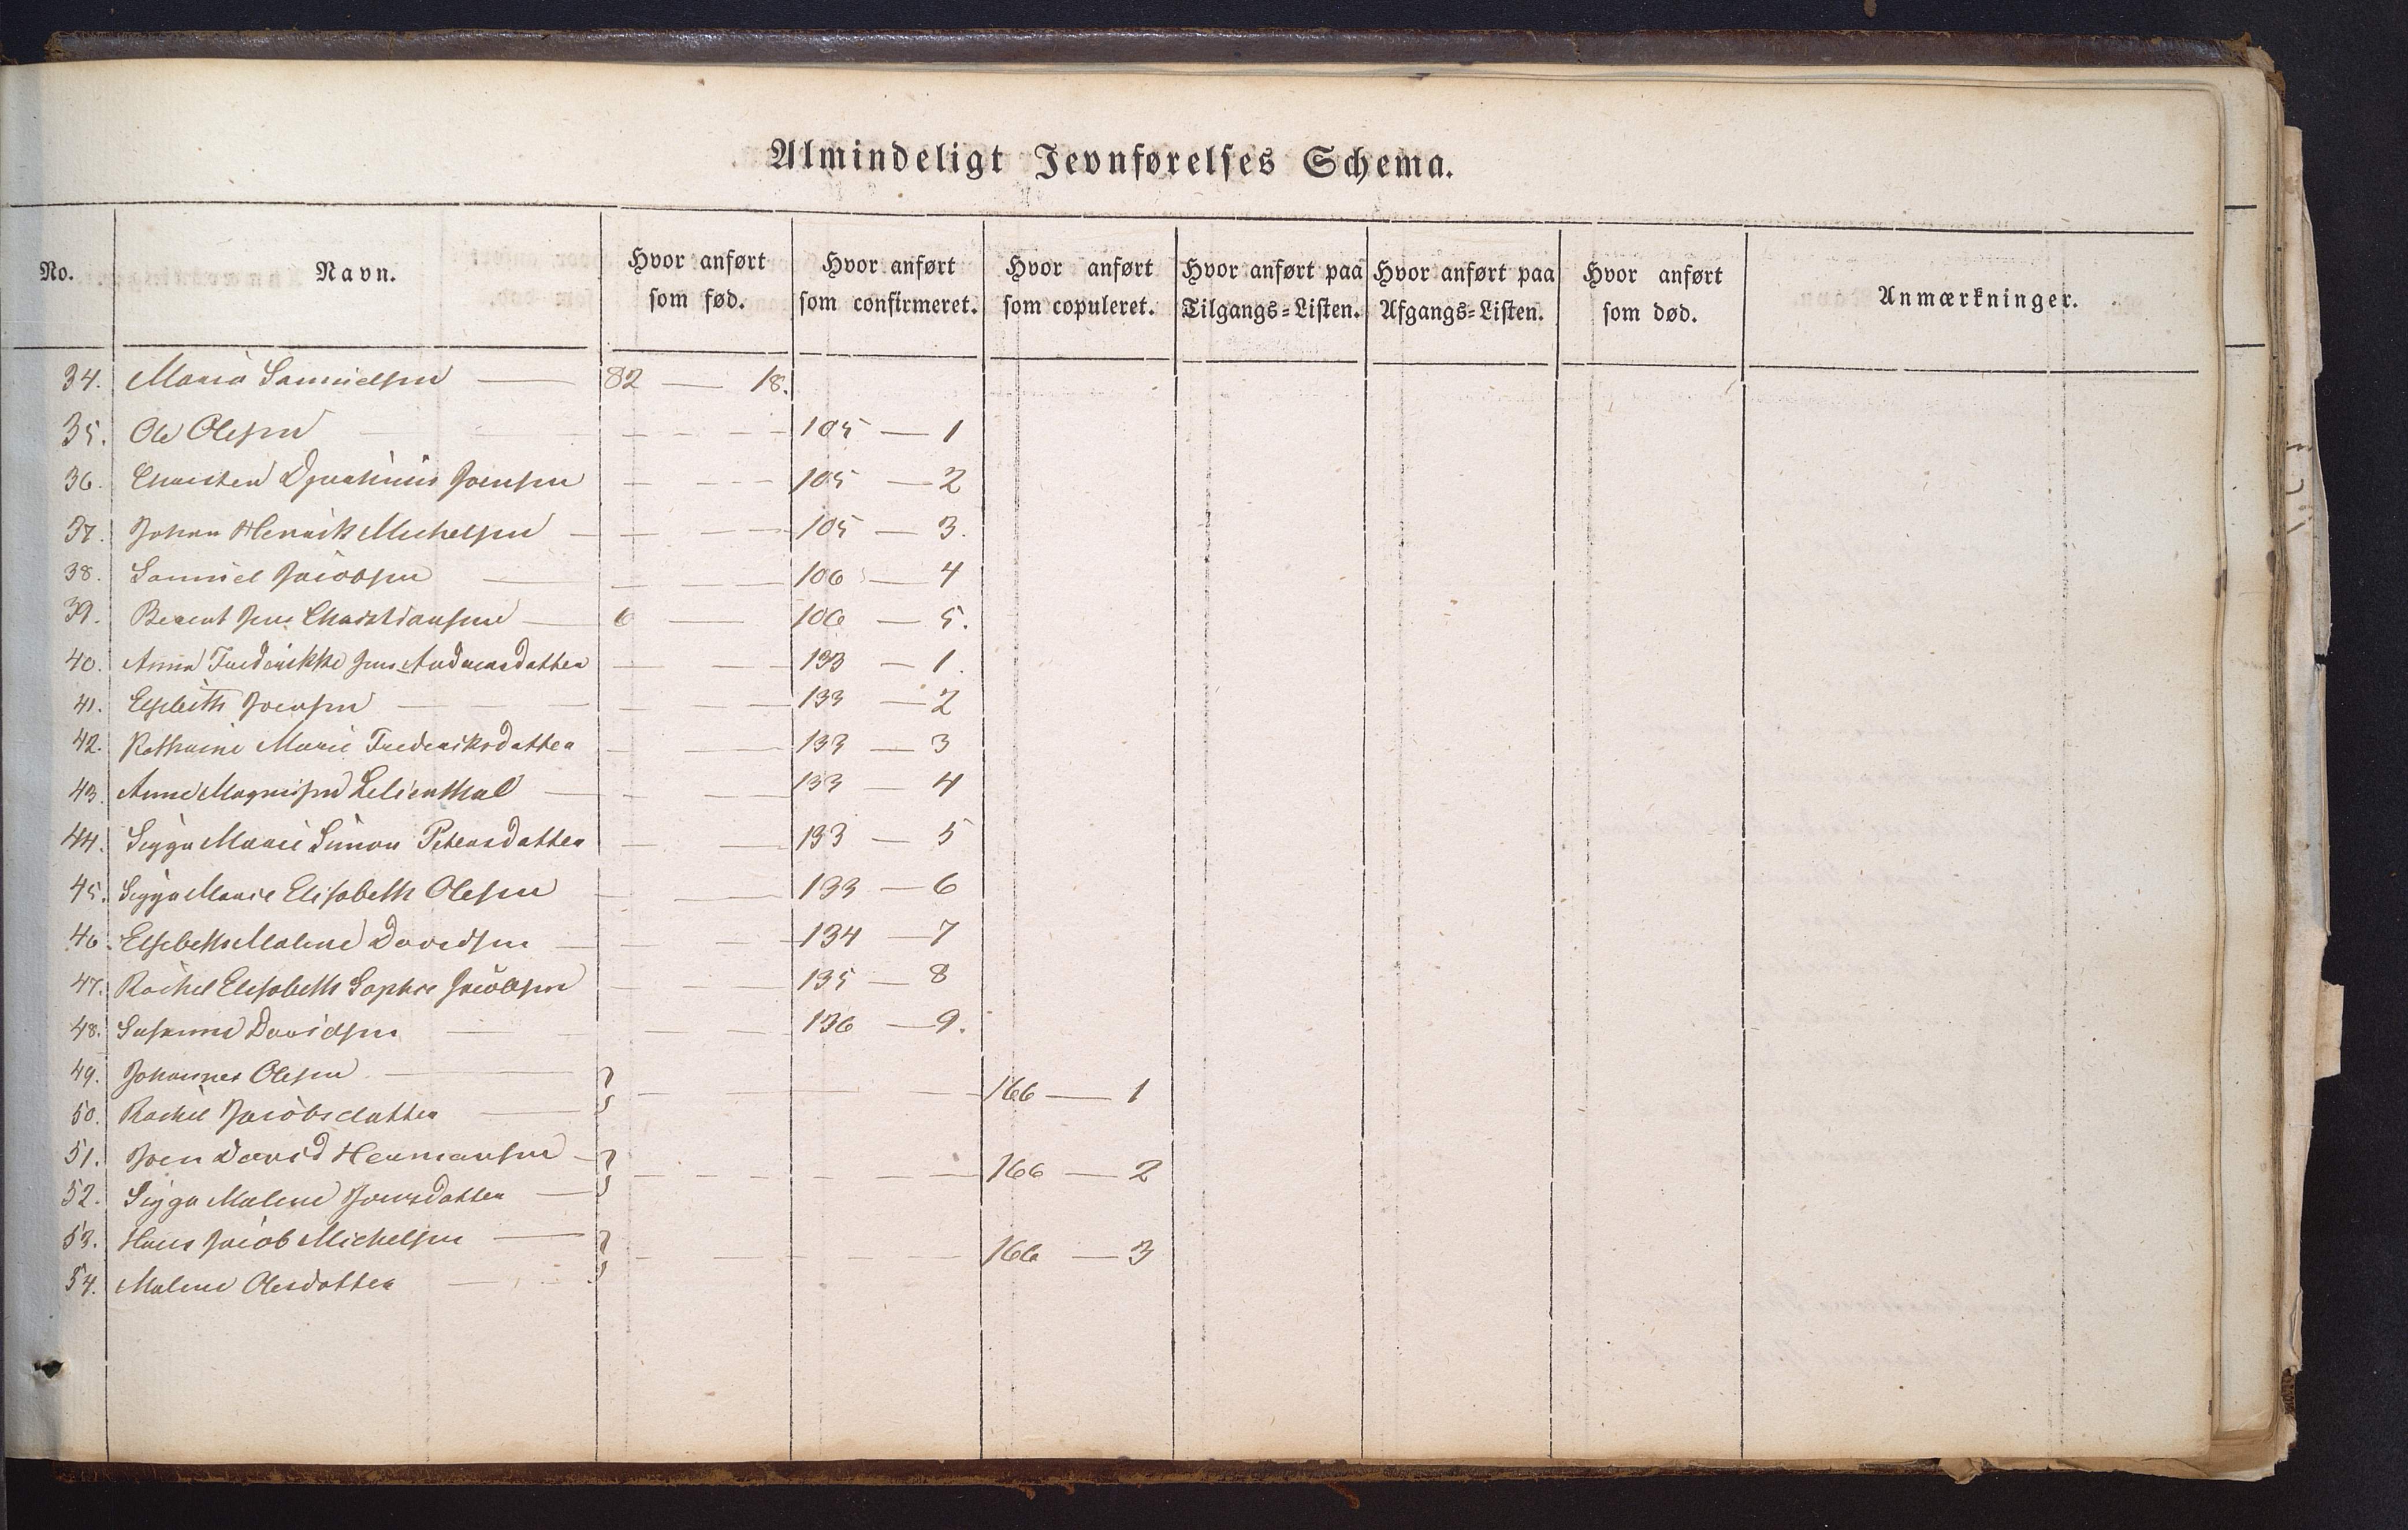 Almindeligt Jevnførelses Schema.
No. Navn. Hvor anført som fød. Hvor anført som confirmeret. Hvor anført som copuleret. Hvor anført paa Tilgangs=Listen. Hvor anført paa Afgangs=Listen. Hvor anført som død. Anmærkninger.
34. Maria Samuelsen — 82 — 18.
35. Ole Olesen — 105 — 1
36. Joensen — 105 — 2
37. Johan Henrik Michelsen — 105 — 3.
38. Samuel Jacobsen — 106 — 4
39. Berent Jens Christiansen — 6 — 106 — 5.
40. Anna Frederikke Jens Andreasdatter — 133 — 1.
41. Elsbeth Joensen — 133 — 2
42. Kathrine Marie Frederiksdatter — 133 — 3
43. Anne Magnusen Lilienthal — 133 — 4
44. Sigga Marie Simon Petersdatter — 133 — 5
45. Sigga Marie Elisabeth Olesen — 133 — 6
46. Elsebeth Malene Davidsen — 134 — 7
47. Rachel Elisabeth Sophie Jacobsen — 135 — 8
48. Susanne Davidsen — 136 — 9.
49. Johannes Olesen —
166 — 1
50. Rachel Jacobsdatter —
51. Joen David Hermansen —
166 — 2
52. Sigga Malene Joensdatter —
53. Hans Jacob Michelsen —
166 — 3
54. Malene Olesdatter —